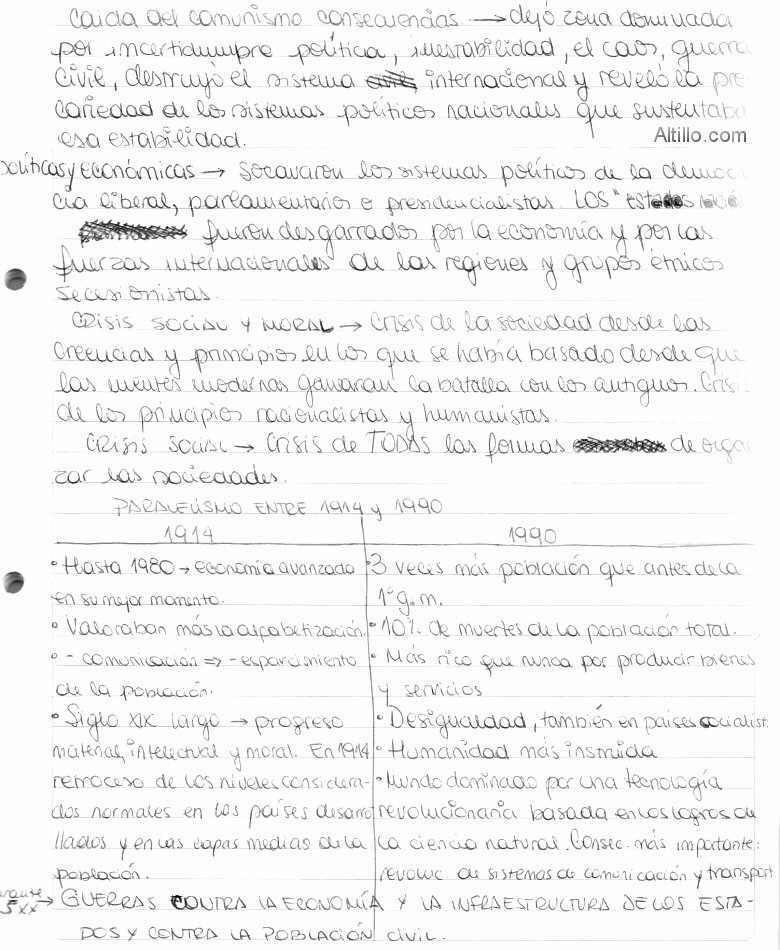 Caída del comunismo consecuencias → dejó zona dominada
por incertidumbre política, inestabilidad, el caos, guerra
civil, destruyó el sistema internacional y reveló la pre
cariedad de los sistemas políticos nacionales que sustentaba
esa estabilidad.
Altillo.com
políticas y económicas → Socavaron los sistemas políticos de la democ
cia liberal, parlamentarios o presidencialistas. LOS "estados nació
fueron desgarrados por la economía y por las
fuerzas internacionales de las regiones y grupos étnicos
secesionistas.
CRISIS SOCIAL Y MORAL → Crisis de la sociedad desde las
Creencias y principios en los que se había basado desde que
las mentes modernas ganaran la batalla con los antiguos. Crisi
de los principios racionalistas y humanistas.
CRISIS SOCIAL → Crisis de TODAS las formas de orga
zar las sociedades.
PARALELISMO ENTRE 1914 y 1990
1914
• Hasta 1980 → economía avanzada
en su mejor momento.
• Valoraban más la alfabetización.
• - comunicación ⇒ - esparcimiento
de la población.
• Siglo XIX largo → progreso
material, intelectual y moral. En 1914
retroceso de los niveles considera-
dos normales en los países desarro
llados y en las capas medias de la
población.
1990
• 3 veces más población que antes de la
1° g.m.
• 10% de muertes de la población total.
• Más rico que nunca por producir bienes
y servicios
• Desigualdad, también en países socialist.
• Humanidad más instruida
• Mundo dominado por una tecnología
revolucionaria basada en los logros de
la ciencia natural. Consec. más importante:
revoluc de sistemas de comunicación y transport
5 XX → GUERRAS CONTRA LA ECONOMÍA Y LA INFRAESTRUCTURA DE LOS ESTA-
DOS Y CONTRA LA POBLACIÓN civil.